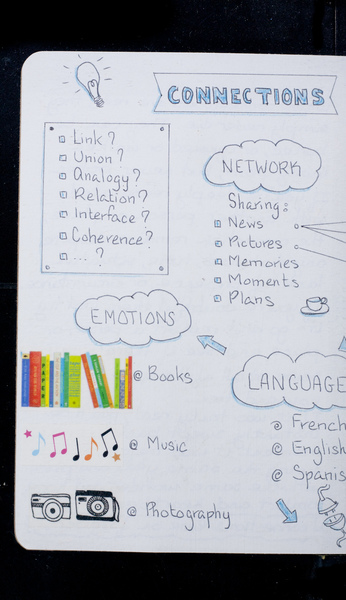 CONNECTIONS
Link?
Union?
Analogy?
Relation?
Interface?
Coherence?
... ?
NETWORK
Sharing:
News
Pictures
Memories
Moments
Plans
EMOTIONS
@ Books
@ Music
@ Photography
LANGUAGE
@ French
@ English
@ Spanis